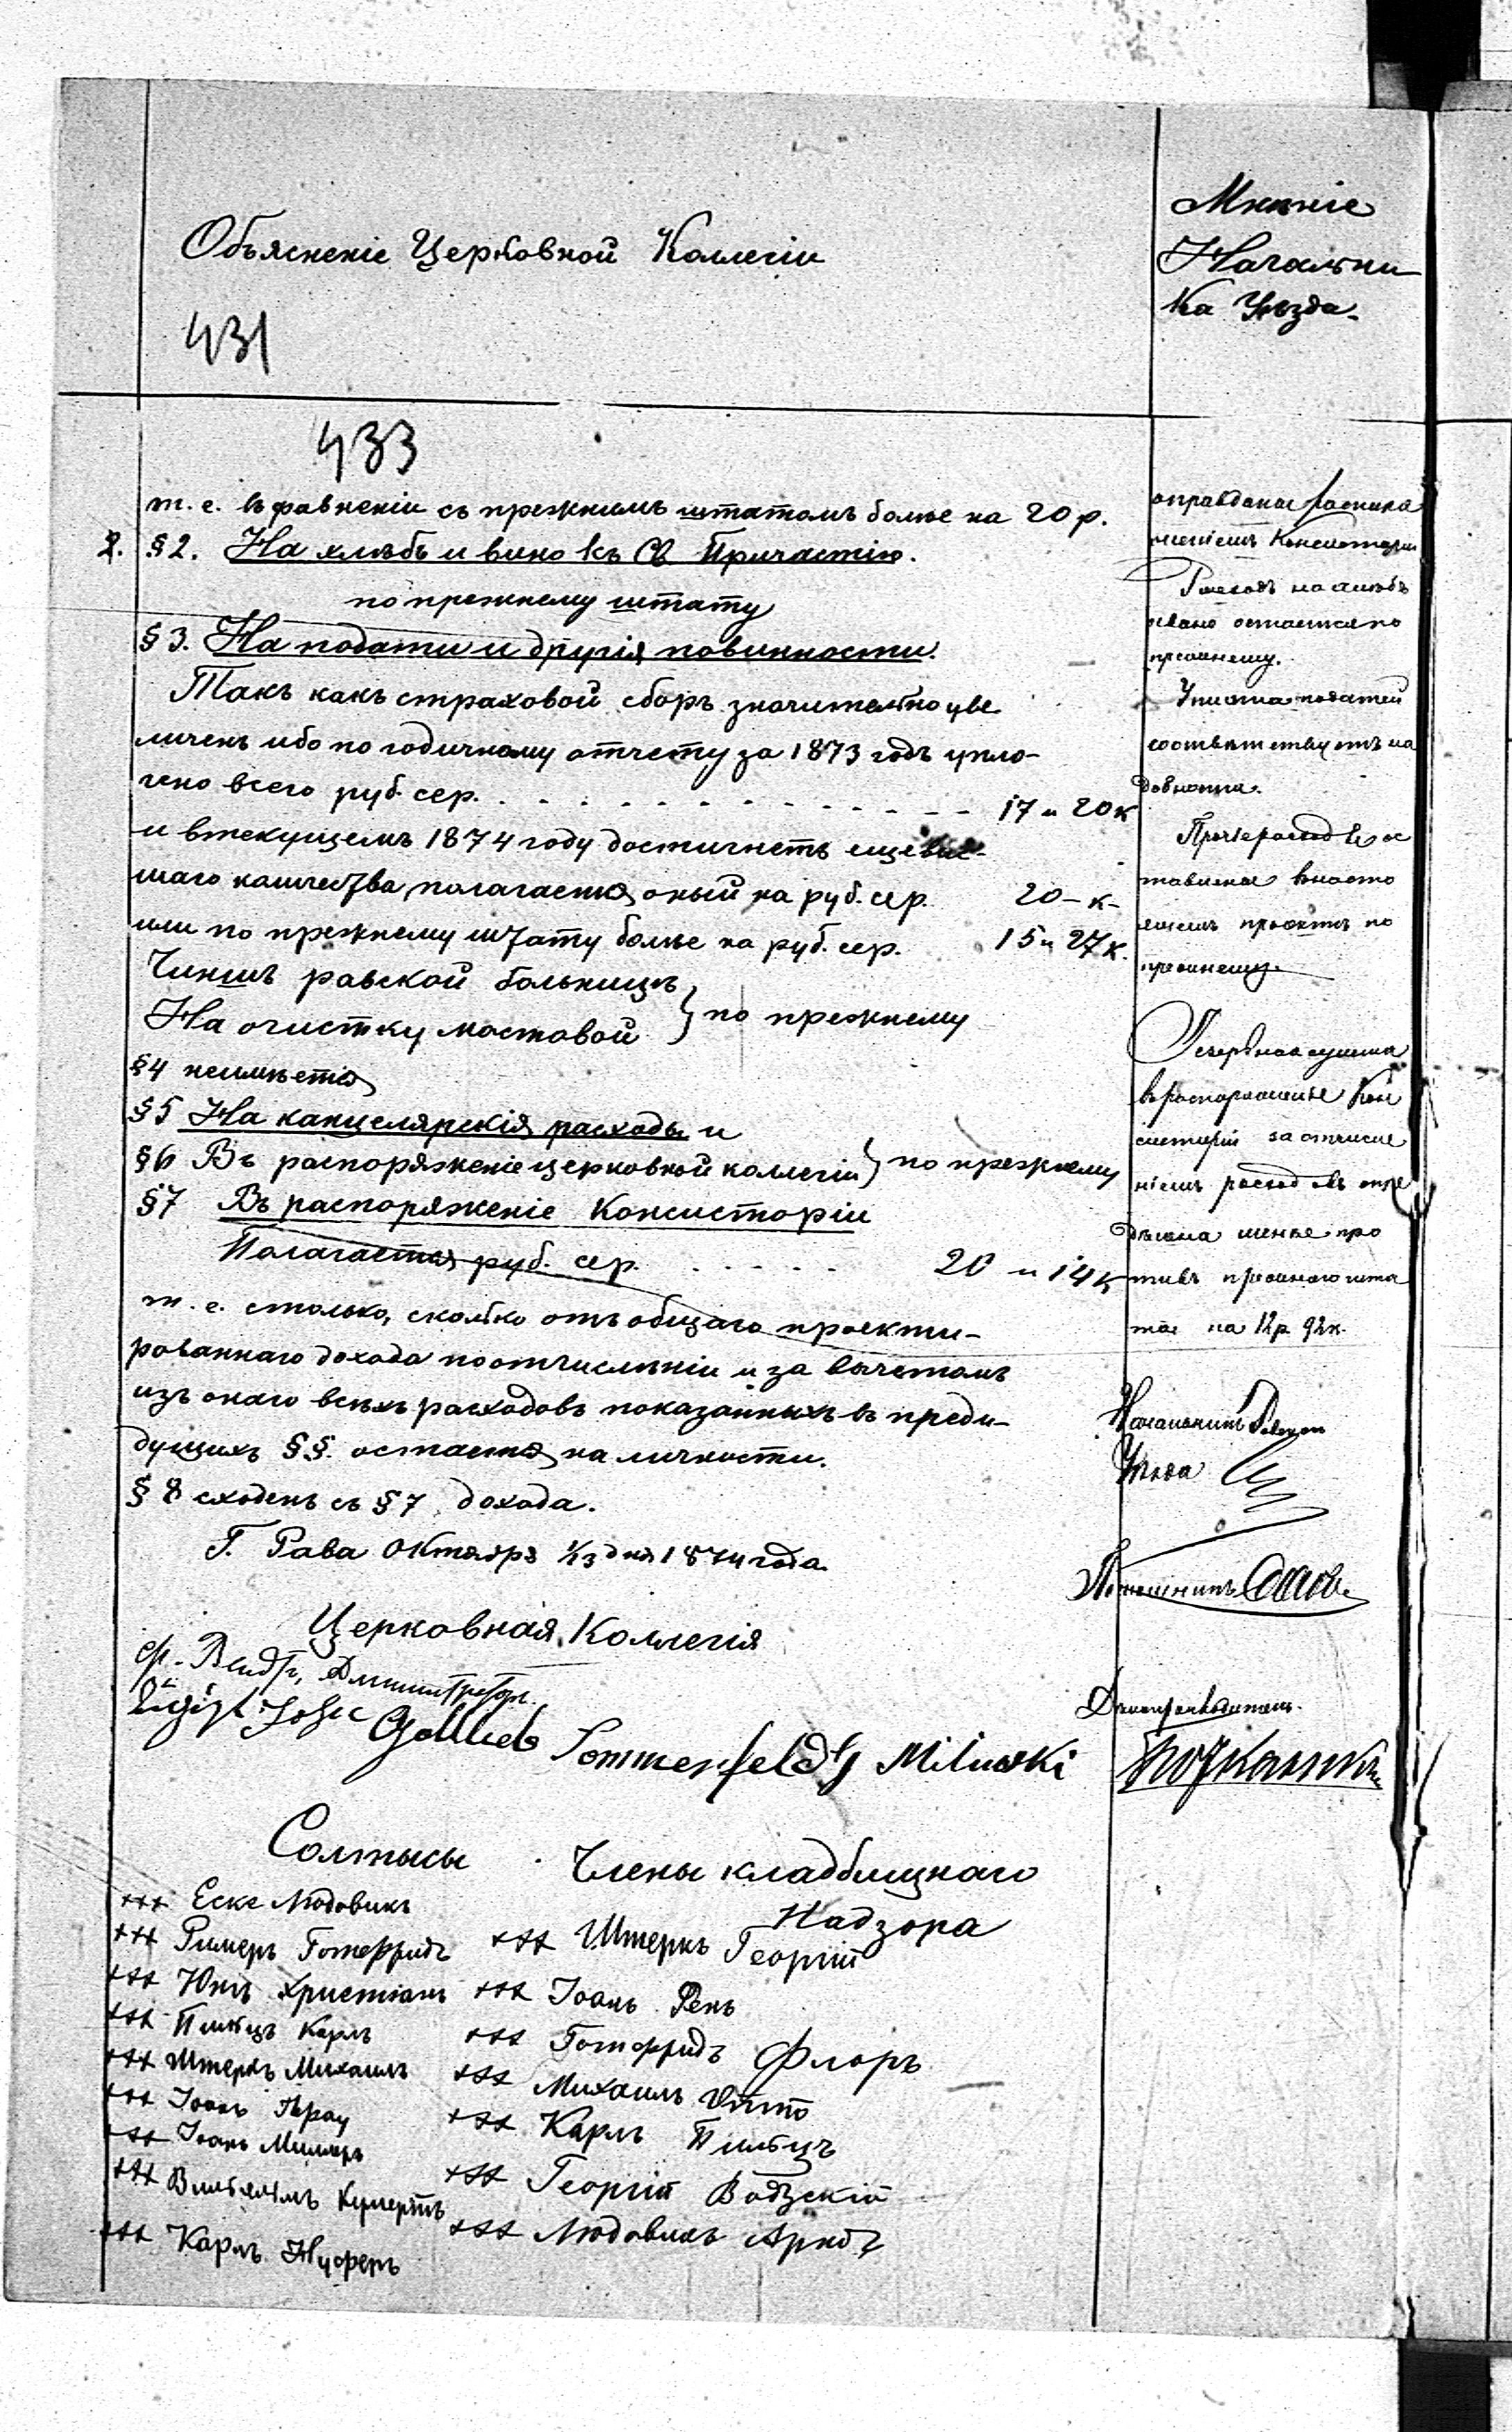 Объясненіе Церковной Коллегіи
431
433
т. е. въ сравненіи съ прежнимъ штатомъ болѣе на 20 р.
2. § 2. На хлѣбъ и вино къ Св Причастію.
по прежнему штату
§ 3. На подати и другія повинности.
Такъ какъ страховой сборъ значительно уве
личенъ ибо по годичному отчету за 1873 годъ упло-
чено всего руб. сер. . . . . . . . . . . . . . 17 " 20 к
и въ текущемъ 1874 году достигнетъ еще выс-
шаго количества, полагается оный на руб. сер. 20 - к -
или по прежнему штату болѣе на руб. сер. 15 " 27 к.
Чиншъ равской больницѣ
На очистку мостовой } по прежнему
§ 4 неимѣется
§ 5 На канцелярскія расходы и
§ 6 Въ распоряженіе церковной коллегіи } по прежнему
§ 7 Въ распоряженіе Консисторіи
Полагается руб. сер. . . . . . 20 " 14 к
т. е. столько, сколько отъ общаго проекти-
рованнаго дохода по отчисленіи и за вычетомъ
изъ онаго всѣхъ расходовъ показанныхъ въ преды-
дущихъ §§. остается наличности.
§ 8 сходенъ съ § 7 дохода.
Г. Рава Октября 1/13 дня 1874 года.
Церковная Коллегія
Администраторъ.
Gottlieb Sommerfeld G Milnitski
Солтысы
+++ Еске Людовикъ
+++ Римеръ Готфридъ
+++ Юнгъ Христіанъ
+++ Пильцъ Карлъ
+++ Штеркъ Михаилъ
+++ Іоанъ Грау
+++ Іоанъ Миллеръ
+++ Вильгельмъ
+++ Карлъ
Члены кладбищнаго
Надзора
+++ Штеркъ Георгій
+++ Іоанъ Ренъ
+++ Готфридъ Флоръ
+++ Михаилъ Отто
+++ Карлъ Пильцъ
+++ Георгій Водзскій
+++ Людовикъ Арндъ
Мнѣніе
Начальни
ка Уѣзда.
оправдана
Консисторіи
Расходъ на хлѣбъ
и вино остается по
прежнему.
Уплата податей
соотвѣтствуетъ на
добности.
Прочіе расходы ос
тавлены въ насто
ящемъ проектѣ по
прежнему.
Резервная сумма
въ распоряженіе Кон
систоріи за отчисле
ніемъ расходовъ опре
дѣлена менѣе про
тивъ прежняго шта
та на 12 р 92 к.
Начальникъ
Уѣзда
Помощникъ
Дѣлопроизводитель.